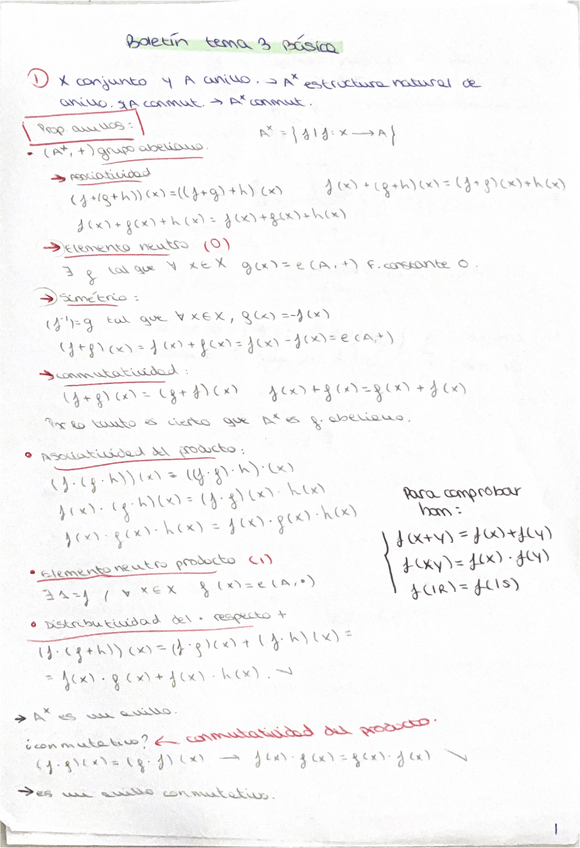 Boletín tema 3 Básica
① X conjunto y A anillo. → Aˣ estructura natural de
anillo. y A conmut. → Aˣ conmut.
Prop. anillos:
Aˣ = {f | f: X → A}
• (Aˣ, +) grupo abeliano.
→ Asociatividad
(f+(g+h))(x)=((f+g)+h)(x)    f(x)+(g+h)(x)=(f+g)(x)+h(x)
f(x)+g(x)+h(x)=f(x)+g(x)+h(x)
→ Elemento neutro (0)
∃ g tal que ∀ x∈X g(x)=e(A,+) F. constante 0.
→ Simétrico:
(f⁻¹)=g tal que ∀ x∈X, g(x)=-f(x)
(f+g)(x)=f(x)+g(x)=f(x)-f(x)=e(A,+)
→ Conmutatividad:
(f+g)(x)=(g+f)(x)    f(x)+g(x)=g(x)+f(x)
Por lo tanto es cierto que Aˣ es g. abeliano.
• Asociatividad del producto:
(f·(g·h))(x)=((f·g)·h)·(x)
f(x)·(g·h)(x)=(f·g)(x)·h(x)
f(x)·g(x)·h(x)=f(x)·g(x)·h(x)
Para comprobar
hom:
f(x+y)=f(x)+f(y)
f(xy)=f(x)·f(y)
f(1R)=f(1S)
• Elemento neutro producto (1)
∃ 1=f / ∀ x∈X g(x)=e(A,·)
• Distributividad del · respecto +
(f·(g+h))(x)=(f·g)(x)+(f·h)(x)=
=f(x)·g(x)+f(x)·h(x). ✓
→ Aˣ es un anillo.
¿conmutativo? ← conmutatividad del producto.
(f·g)(x)=(g·f)(x) → f(x)·g(x)=g(x)·f(x) ✓
→ es un anillo conmutativo.
1